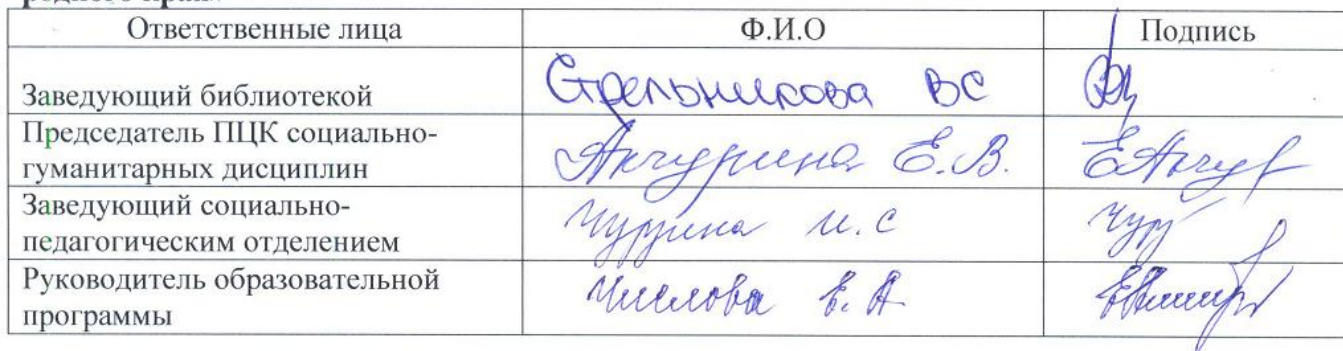 Ответственные лица Ф.И.О Подпись
Заведующий библиотекой Стрельникова ВС
Председатель ПЦК социально-
гуманитарных дисциплин Акчурина Е.В.
Заведующий социально-
педагогическим отделением И.С
Руководитель образовательной
программы Числова Е.А